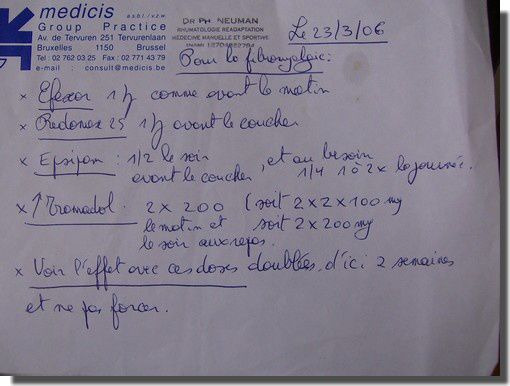 medicis asbl/vzw
Group Practice
Av. de Tervuren 251 Tervurenlaan
Bruxelles 1150 Brussel
Tel : 02 762 03 25 Fax : 02 771 43 79
e-mail : consult@medicis.be
DR PH. NEUMAN
RHUMATOLOGIE READAPTATION
MEDECINE MANUELLE ET SPORTIVE
INAMI
Le 23/3/06
Pour la fibromyalgie:
× Efexor 1/j comme avant le matin
× Redomex 25 1/j avant le coucher
× Epsipam : 1/2 le soir avant le coucher, et au besoin 1/4 1 à 2x la journée.
× ↑Tramadol. 2 x 200 (soit 2x2x100 mg
le matin et soit 2x200 mg
le soir aux repas.
× Voir l'effet avec ces doses doublées, d'ici 2 semaines
et ne pas forcer.